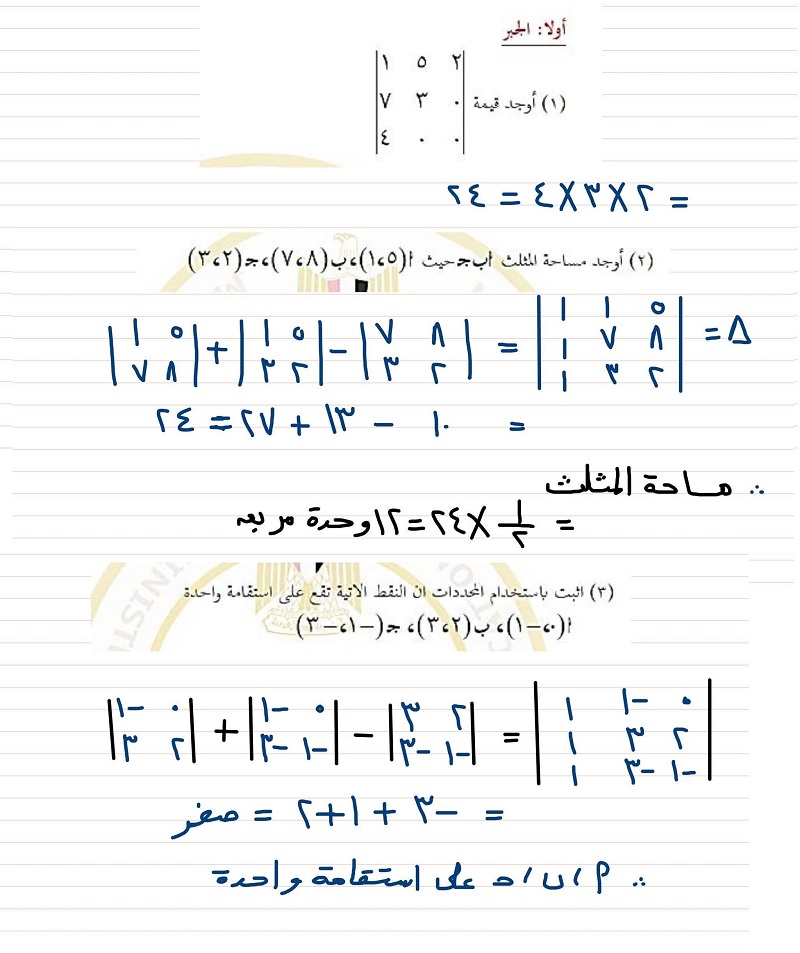 أولا: الجبر
(١) أوجد قيمة
٢ ٥ ١
٠ ٣ ٧
٠ ٠ ٤
= ٢ × ٣ × ٤ = ٢٤
(٢) أوجد مساحة المثلث ا ب جـ حيث ا(١،٥)، ب(٧،٨)، جـ(٣،٢)
∆ = | ٥ ١ ١ | = | ٨ ٧ | - | ٥ ١ | + | ٥ ١ |
| ٨ ٧ ١ | | ٢ ٣ | | ٢ ٣ | | ٨ ٧ |
| ٢ ٣ ١ |
= ١٠ - ١٣ + ٢٧ = ٢٤
∴ مساحة المثلث
= ١/٢ × ٢٤ = ١٢ وحدة مربعه
(٣) اثبت باستخدام المحددات ان النقط الاتية تقع على استقامة واحدة
ا(٠،-١)، ب(٣،٢)، جـ(-١،-٣)
| ٠ -١ ١ | = | ٢ ٣ | - | ٠ -١ | + | ٠ -١ |
| ٢ ٣ ١ | | -١ -٣ | | -١ -٣ | | ٢ ٣ |
| -١ -٣ ١ |
= -٣ + ١ + ٢ = صفر
∴ ا، ب، جـ على استقامة واحدة